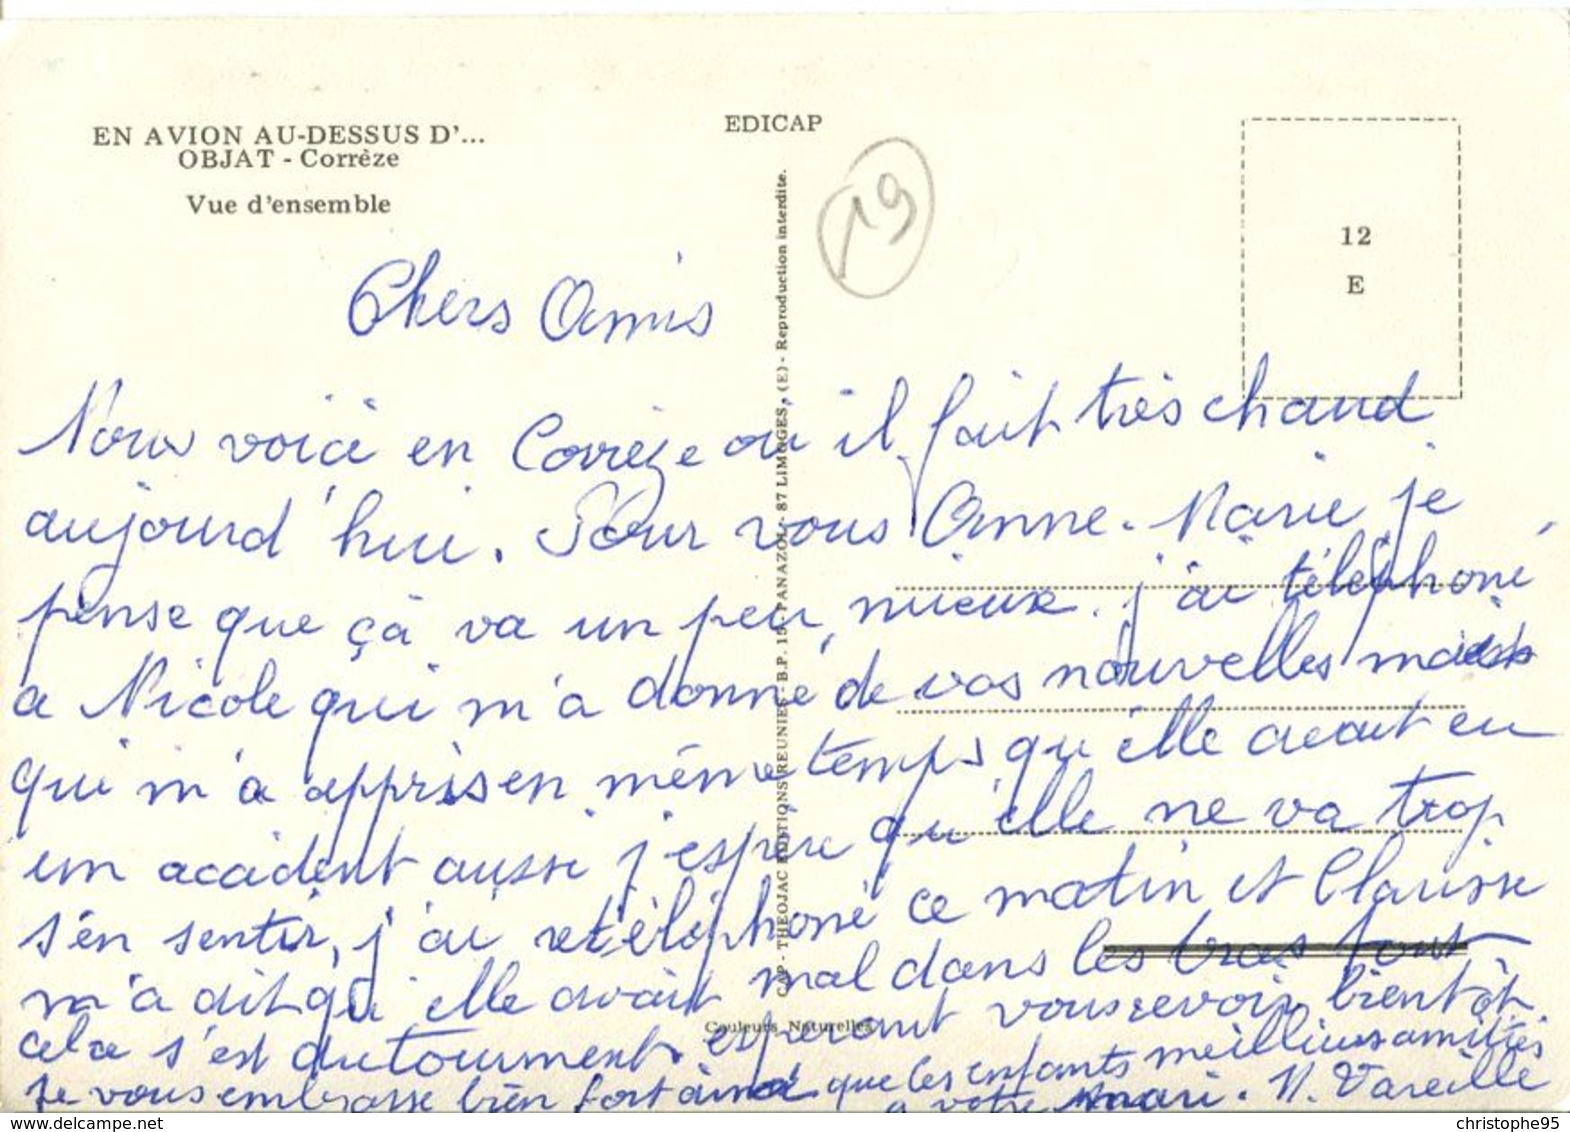 EN AVION AU-DESSUS D'...
OBJAT - Corrèze
Vue d'ensemble
EDICAP
19
12
E
CAP - THEOJAC EDITIONS REUNIES, B.P. 15 - PANAZOL - 87 LIMOGES, (E) - Reproduction interdite.
Couleurs Naturelles
Chers Amis
Nous voici en Corrèze où il fait très chaud
aujourd'hui. Pour vous Anne-Marie je
pense que çà va un peu mieux. j'ai téléphoné
a Nicole qui m'a donné de vos nouvelles mais
qui m'a appris en même temps qu'elle avait eu
un accident aussi j'espère qu'elle ne va trop
s'en sentir, j'ai retéléphoné ce matin et Clarisse
m'a dit qu'elle avait mal dans les bras tout
cela s'est du tourment. esperant vous revoir bientôt
je vous embrasse bien fort ainsi que les enfants meilleures amitiés
a votre mari. N. Vareille
https://www.delcampe.net
christophe95